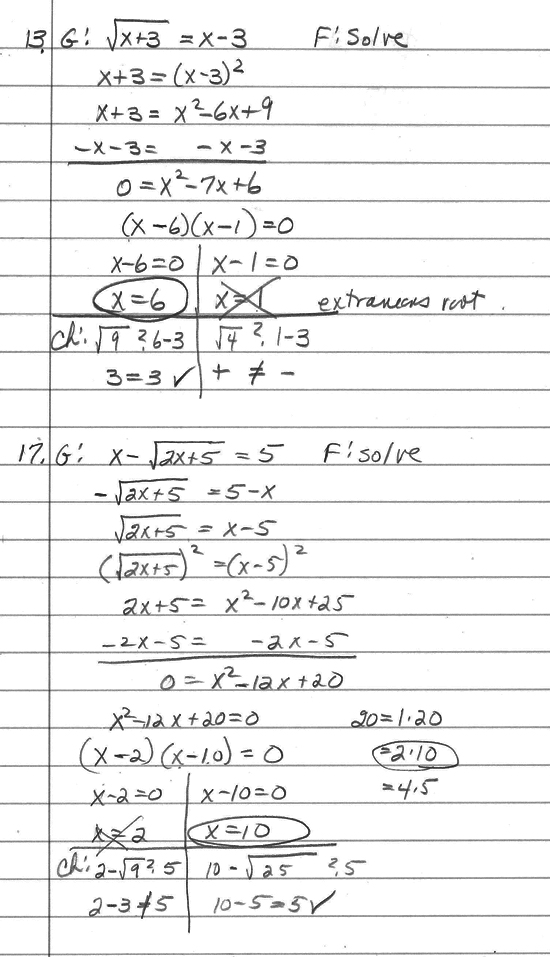 13. G: √(x+3) = x-3 F: Solve
x+3 = (x-3)²
x+3 = x²-6x+9
-x-3 = -x-3
0 = x²-7x+6
(x-6)(x-1) = 0
x-6=0 | x-1=0
x=6 | x=1 extraneous root.
Ch: √9 ? 6-3 | √4 ? 1-3
3=3 ✓ | + ≠ -
17. G: x-√(2x+5) = 5 F: solve
-√(2x+5) = 5-x
√(2x+5) = x-5
(√(2x+5))² = (x-5)²
2x+5 = x²-10x+25
-2x-5 = -2x-5
0 = x²-12x+20
x²-12x+20=0 20=1·20
(x-2)(x-10) = 0 =2·10
x-2=0 | x-10=0 =4·5
x=2 | x=10
Ch: 2-√9 ? 5 | 10-√25 ? 5
2-3≠5 | 10-5=5 ✓